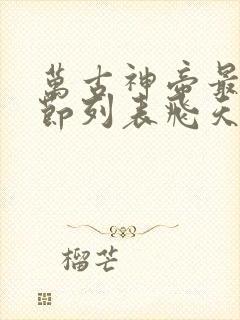 萬古神帝最
節列表飛天
榴芒